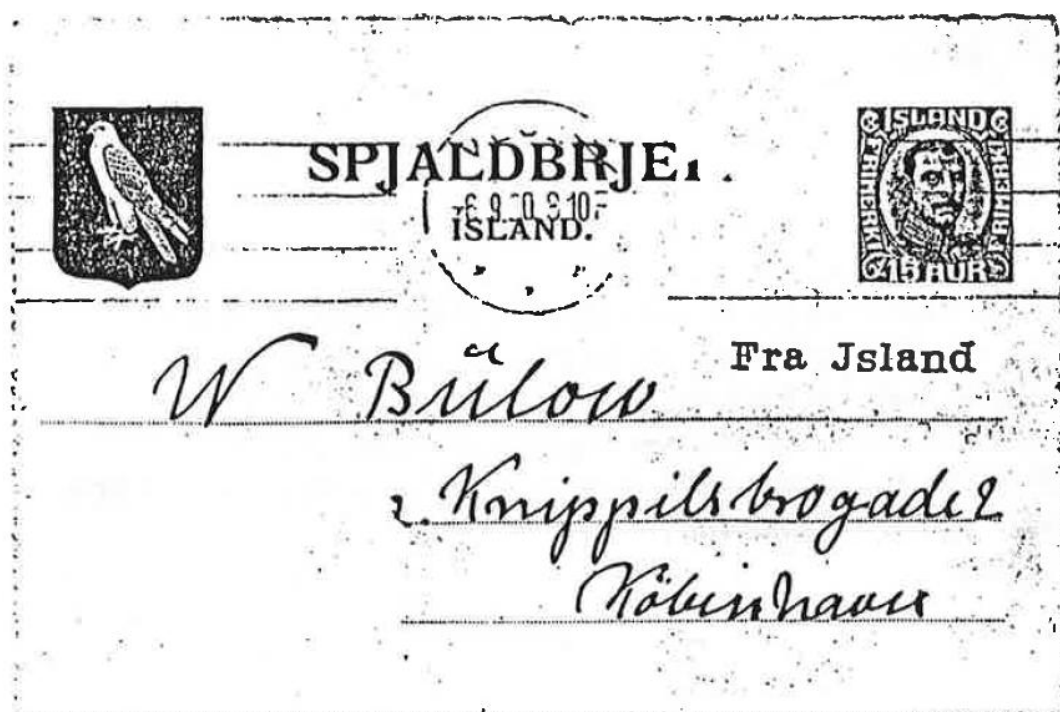 SPJALDBRJE
ISLAND.
ISLAND
FRIMERKI
FRIMERKI
15 AUR
Fra Jsland
W Bülow
2. Knippilsbrogade 2
Köbenhavn